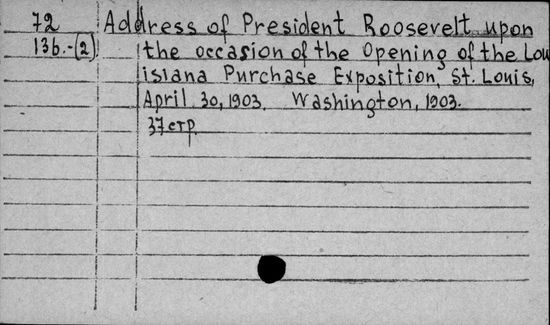 72 Address of President Roosevelt upon
136.-(2) the occasion of the Opening of the Lou
isiana Purchase Exposition, St. Louis,
April 30, 1903. Washington, 1903.
37 стр.